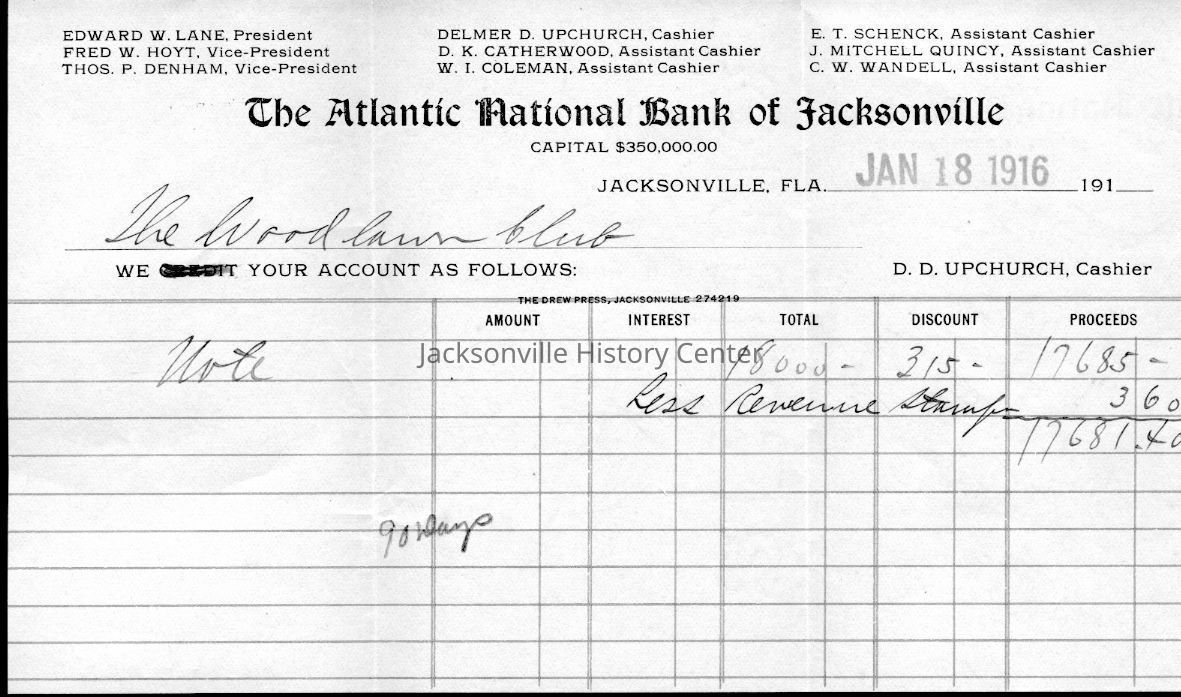 EDWARD W. LANE, President
FRED W. HOYT, Vice-President
THOS. P. DENHAM, Vice-President
DELMER D. UPCHURCH, Cashier
D. K. CATHERWOOD, Assistant Cashier
W. I. COLEMAN, Assistant Cashier
E. T. SCHENCK, Assistant Cashier
J. MITCHELL QUINCY, Assistant Cashier
C. W. WANDELL, Assistant Cashier
The Atlantic National Bank of Jacksonville
CAPITAL $350,000.00
JACKSONVILLE, FLA. JAN 18 1916 191
The Woodlawn Club
WE CREDIT YOUR ACCOUNT AS FOLLOWS:
D. D. UPCHURCH, Cashier
THE DREW PRESS, JACKSONVILLE 274219
AMOUNT INTEREST TOTAL DISCOUNT PROCEEDS
Jacksonville History Center
Note 18000 - 315 - 17685 -
Less Revenue Stamps 3 60
17681.40
90 Days